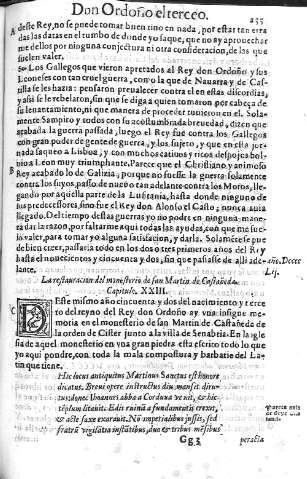 Don Ordoño el tercero.
235
A deste Rey, no se puede tomar buen tino en nada, por estar tan erra
das las datas en el tumbo de donde yo saque, que no ay aprouechar
me dellos por ninguna conjectura ni otra consideracion, de las que
suelen valer.
Los Gallegos que vieron apretado al Rey don Ordoño y sus
Leoneses con tan cruel guerra, como la que de Nauarra y de Cas-
tilla se les hazia: pensaron preualecer contra el en estas discordias,
y assi se le rebelaron, sin que se diga a quien tomaron por cabeça de
su leuantamiento, ni que manera de proceder tuuieron en el. Sola-
mente Sampiro y todos con su acostumbrada breuedad, dizen que
acabada la guerra passada, luego el Rey fue contra los Gallegos
con gran poder de gente de guerra, y los sujeto, y que en esta jor-
nada saqueo a Lisboa, y con muchos cautiuos y ricos despojos bol-
uio a Leon muy triumphante. Parece que el Christiano y animoso
B Rey acabado lo de Galizia, porque no fuesse la guerra solamente
contra los suyos, passo de nueuo tan adelante contra los Moros, lle-
gando por aquella parte de la Lusitania, hasta donde ninguno de
sus predecessores, sino fue el Rey don Alonso el Casto, nunca auia
llegado. Del tiempo destas guerras yo no podre en ninguna mane-
ra dar la razon, por faltarme aqui todas las ayudas, con que me sue-
lo valer, para tomar yo alguna satisfacion, y darla. Solamente se pue
de bien creer, passaria todo en los dos o tres primeros años del Rey
hasta el nouecientos y cincuenta y dos, sin que passasse de alli ade-
lante.
año. Dcccc
Lij.
La restauracion del monesterio de san Martin de Castañeda.
Capitulo. XXIII.
C
Este mismo año cincuenta y dos del nacimiento y terce
ro del reyno del Rey don Ordoño ay vna insigne me
moria en el monesterio de san Martin de Castañeda de
la orden de Cister junto a la villa de Senabria. En la igle
sia de aquel monesterio en vna gran piedra esta escrito todo lo que
yo aqui pondre, con toda la mala compostura y barbarie del La-
tin que tiene.
Hic locus antiquitus Martinus Sanctus est honore
dicatus. Breui opere instructus diu mansit diru-
tus: donec Ioannes abba a Corduua venit, & hic
templum litauit. Edis ruinã a fundamentis erexit,
& acte saxe exarauit. Nõ imperialibus jussis, sed
fratrũ vigilãtia instãtibus, duo & tribus mẽsibus
Gg 3
peracta